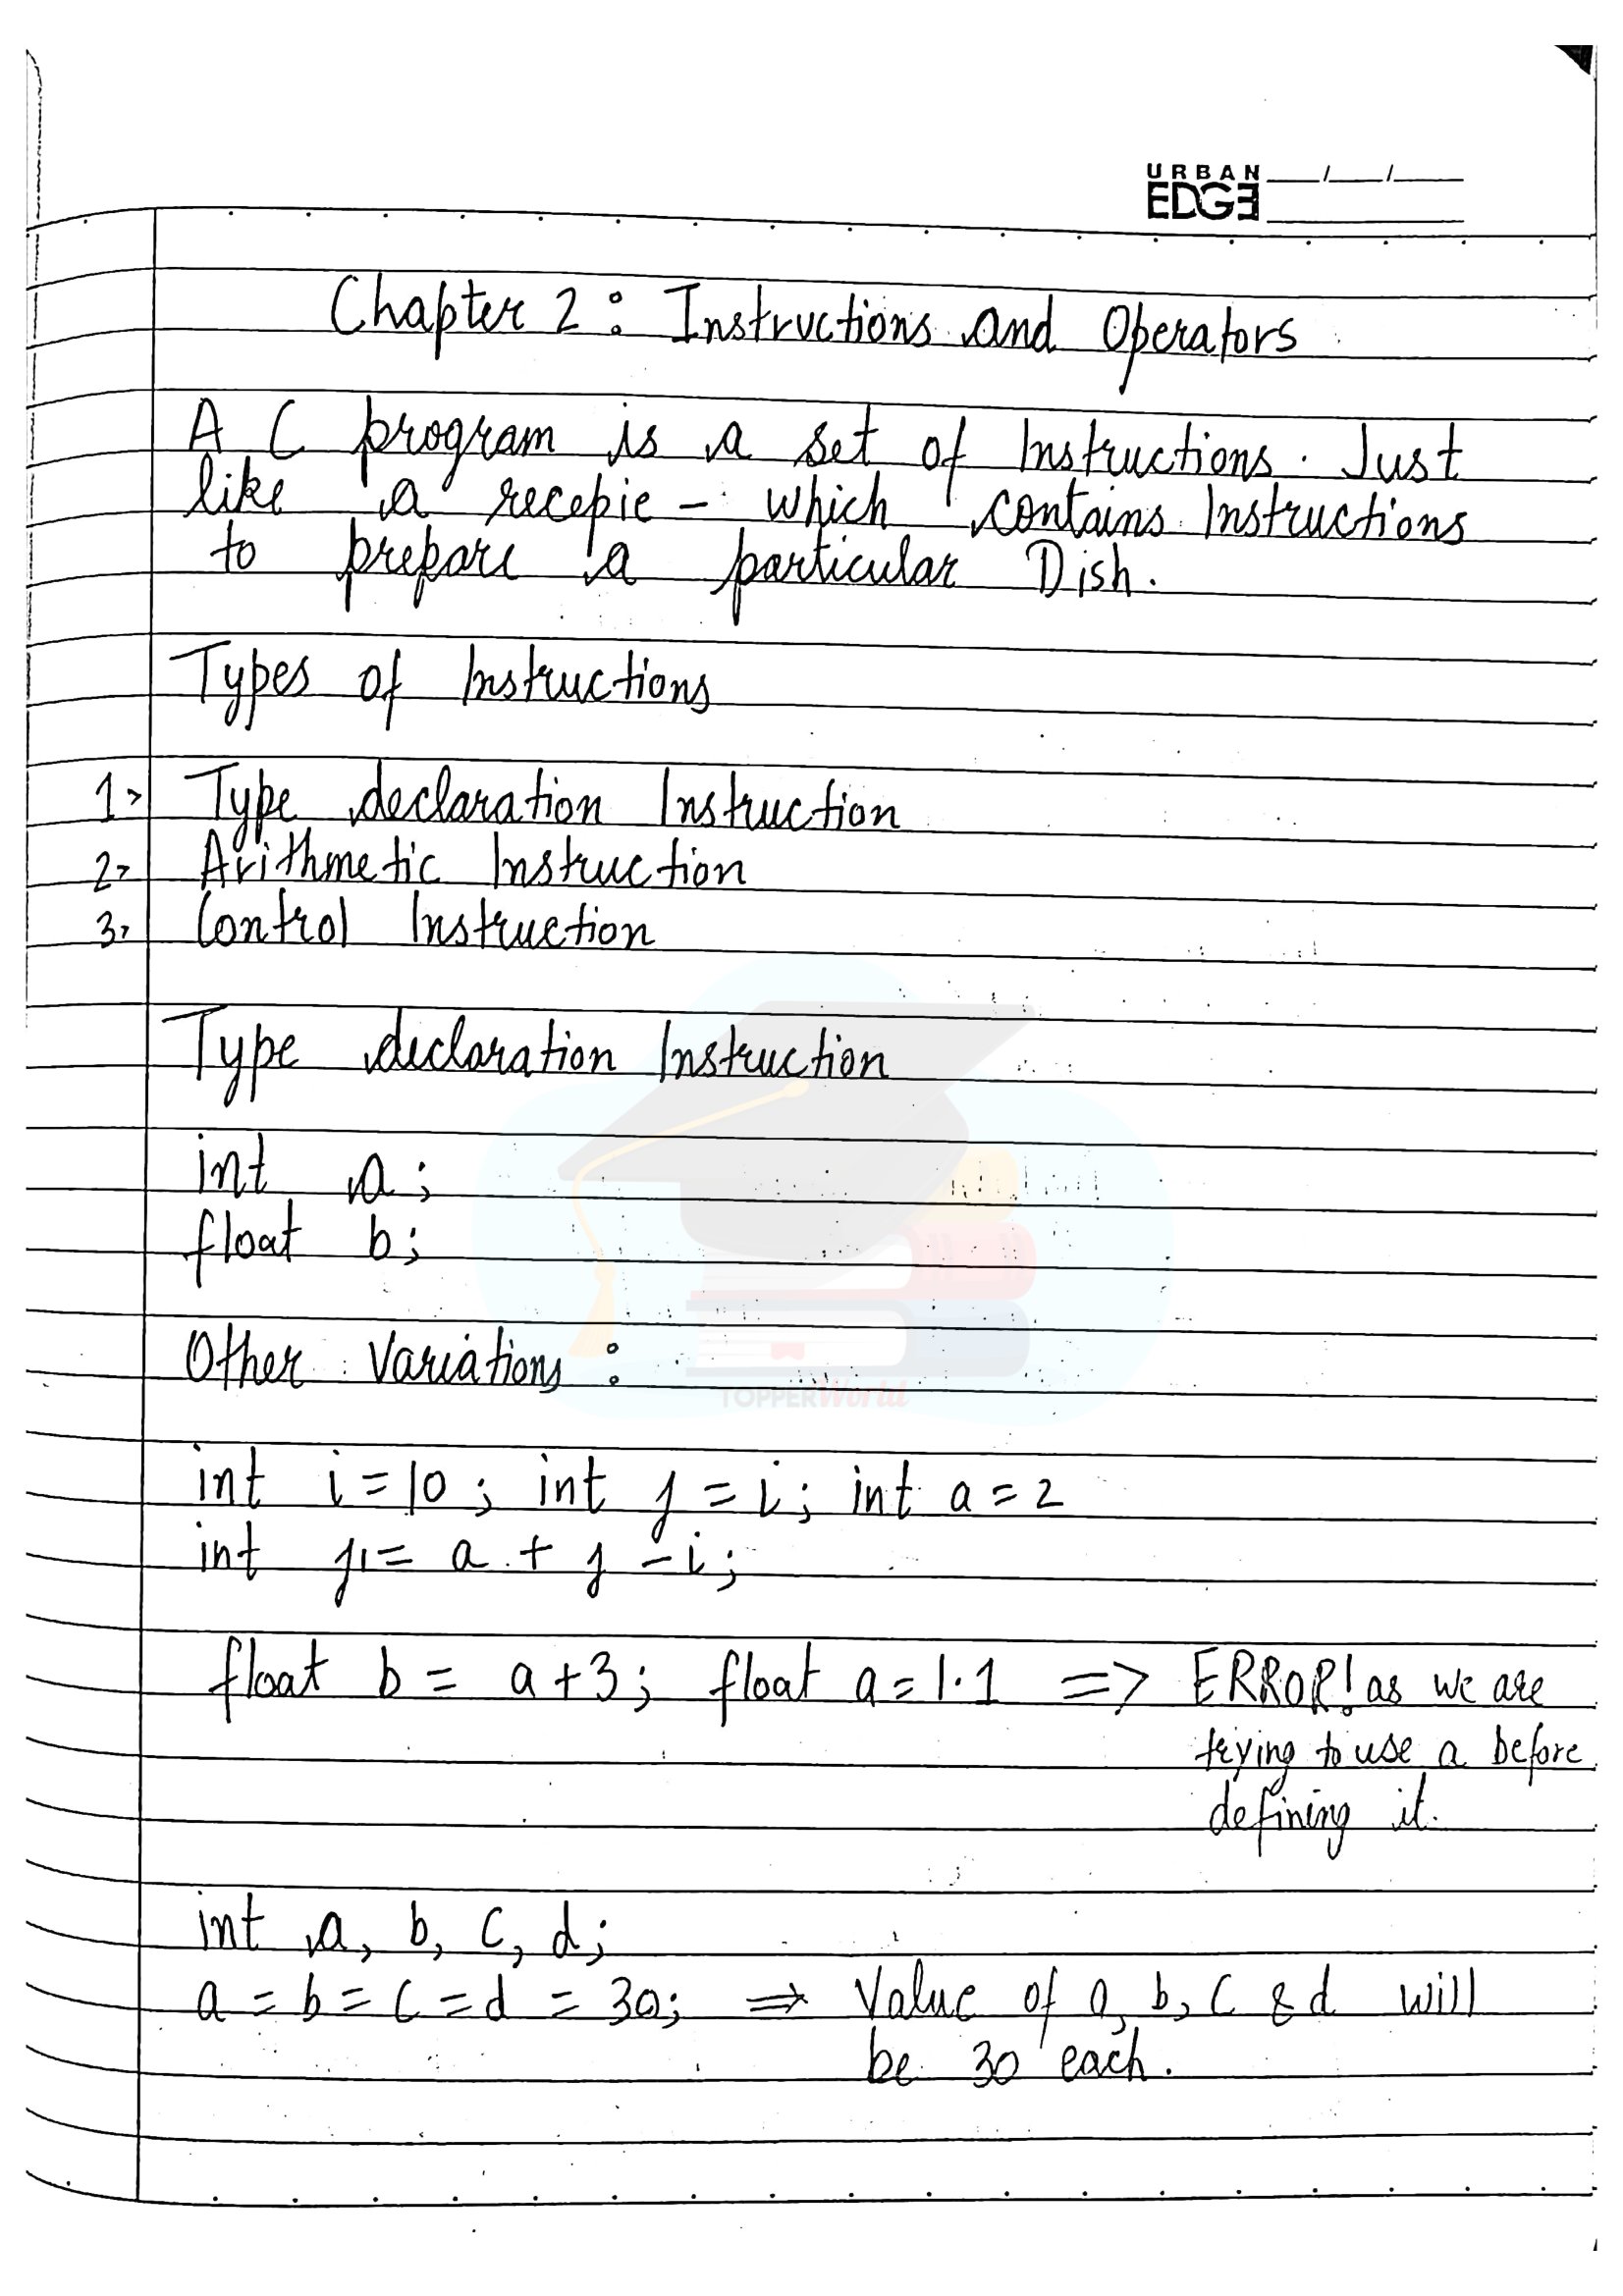 URBAN
EDGE
Chapter 2 : Instructions and Operators
A C program is a set of Instructions. Just
like a recepie - which contains Instructions
to prepare a particular Dish.
Types of Instructions
1> Type declaration Instruction
2> Arithmetic Instruction
3> Control Instruction
Type declaration Instruction
int a;
float b;
Other Variations :
TOPPERWorld
int i = 10 ; int j = i ; int a = 2
int j1 = a + j - i ;
float b = a + 3 ; float a = 1.1 => ERROR! as we are
trying to use a before
defining it.
int a, b, c, d;
a = b = c = d = 30; => Value of a, b, c & d will
be 30 each.